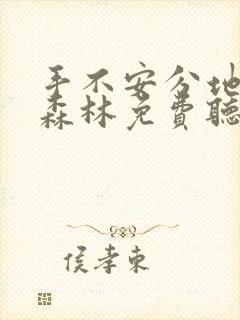 手不安分地
森林免費聽
侯孝東